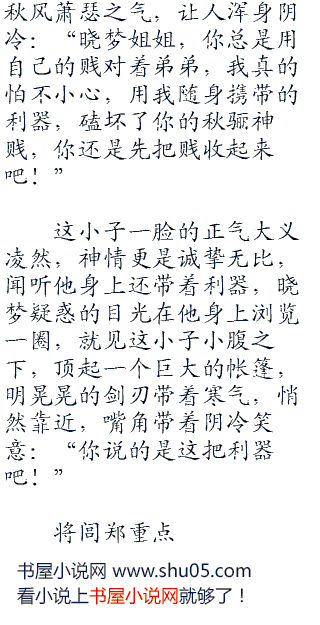 秋风萧瑟之气，让人浑身阴
冷：“晓梦姐姐，你总是用
自己的贱对着弟弟，我真的
怕不小心，用我随身携带的
利器，磕坏了你的秋骊神
贱，你还是先把贱收起来
吧！”
这小子一脸的正气大义
凌然，神情更是诚挚无比，
闻听他身上还带着利器，晓
梦疑惑的目光在他身上浏览
一圈，就见这小子小腹之
下，顶起一个巨大的帐篷，
明晃晃的剑刃带着寒气，悄
然靠近，嘴角带着阴冷笑
意：“你说的是这把利器
吧！”
将闾郑重点
书屋小说网 www.shu05.com
看小说上书屋小说网就够了！